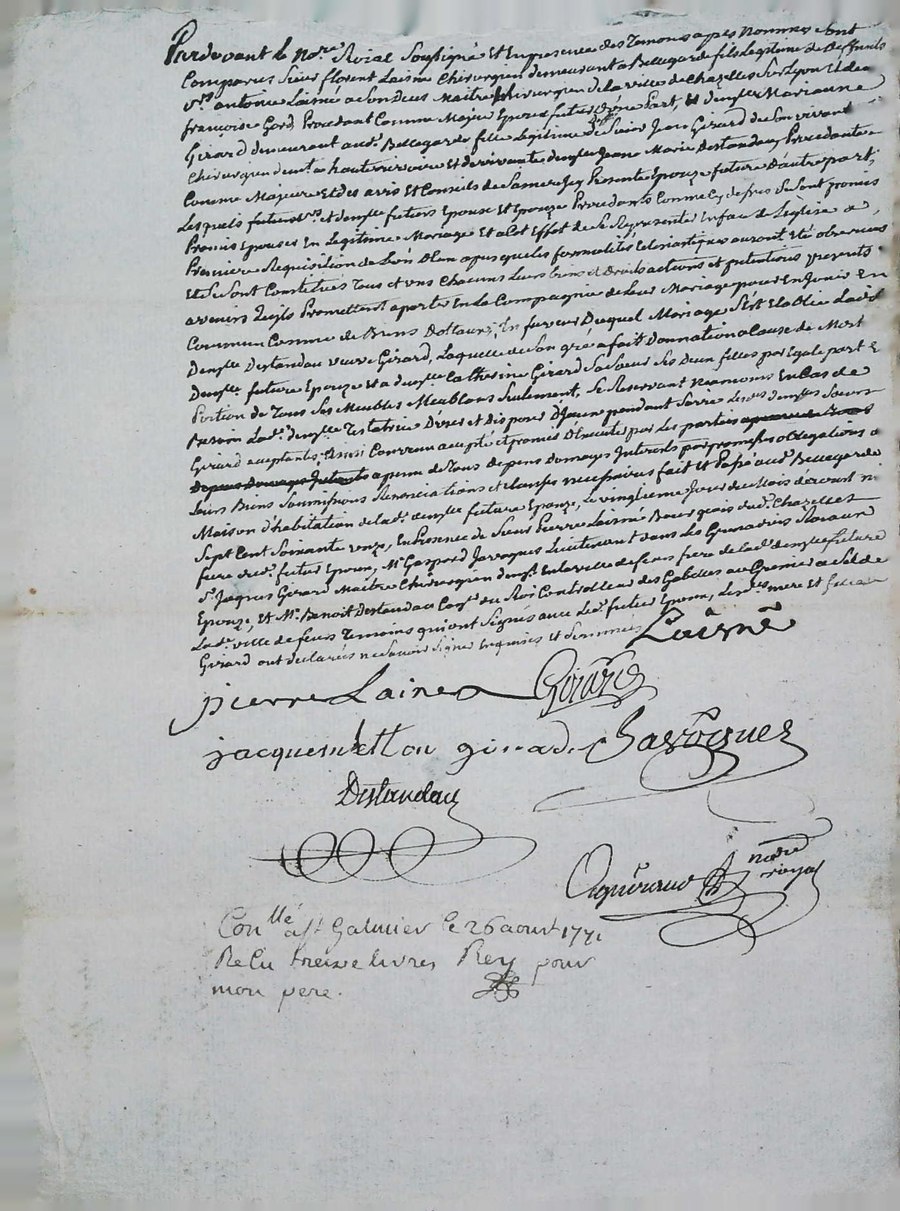 Pardevant le No.re Roial Soussigné Et En presence des Temoins apres Nommés sont
Comparus Sieur florent Laisné Chirurgien demeurant a Bellegarde fils Legitime de deffunts
S.rs antoine Laisné a son deces Maitre Chirurgien de la ville de Chazelles Sur Lyon Et de
françoise Procedant Comme Majeur Epoux futur d'une Part, Et demp.lle Marianne
Girard demeurant aud. Bellegarde fille Legitime de Sieur Jean Girard de son vivant
Chirurgien dem.t a hauterivoire Et de vivante demp.lle Jeanne Marie Destandau, Procedante
Comme Majeure Et des avis Et Conseils de Sa mere Icy Presente Epouze future D'autre part,
Lesquels futur et demp.lle futurs Epoux Et Epouze Procedants Comme Cy dessus Se sont promis
Promis Epouser En Legitime Mariage Et a Cet Effet de se Representer En face de L'eglise a
Premiere Requisition de L'un D'Eux apres que les formalités Eclesiastiques auront Eté observées
Et Se sont Constitués Tous et uns Chacuns Leurs biens et Droits actions et pretentions presents
avenirs Promettent aporter En La Compagnie de Leur Mariage pour En Jouir En
Commun Comme de Biens Dottaux, En faveur Duquel Mariage S'est Etablie Lad.
Demp.lle Destandau veuve Girard, Laquelle de Son gré a fait Donnation a Cause de Mort
Demp.lle future Epouze Et a demp.lle Catherine Girard Sa Soeur Ses Deux filles par Egale part Et
Portion de Tous Ses Meubles Meublants Seulement, Se Reservant Neanmoins En Cas de
Besoin Lad. demp.lle Testatrice D'User et Disposer pendant Sa vie Lesd. demp.lles Soeurs
Girard aceptants, Ainsi Convenu accepté et promis D'Executer par les parties
Depens Domages Interets a peine de Tous depens Domages Interets par promesses obligations de
Leurs Biens Soumissions Renonciations et clauses necessaires fait Et Passé aud. Bellegarde
Maison d'habitation de lad. demp.lle future Epouze, Le vingtieme Jour du Mois d'aoust mil
Sept Cent Soixante onze, En Presence de Sieur Pierre Laisné Bourgeois dud. Chazelles
frere dud. futur Epoux, M.r Gaspard Javogues Lieutenant dans Les Grenadiers
S.r Jaques Girard Maitre Chirurgien En la ville de feurs frere de lad. demp.lle future
Epouze, Et M.r Benoit Destandau du Roi Controlleur des Gabelles au Grenier a Sel de
Lad. ville de feurs Temoins qui ont Signés avec Led. futur Epoux, Lesd.es mere Et
Girard ont declarés ne Savoir Signer Enquises et Sommées
Laisné
pierre Laisné Girard
jacque girard Javogues
Destandau
no.re royal
Con.llé a S.t Galmier le 26 aoust 1771
Recu treize livres Rey pour
mon pere.